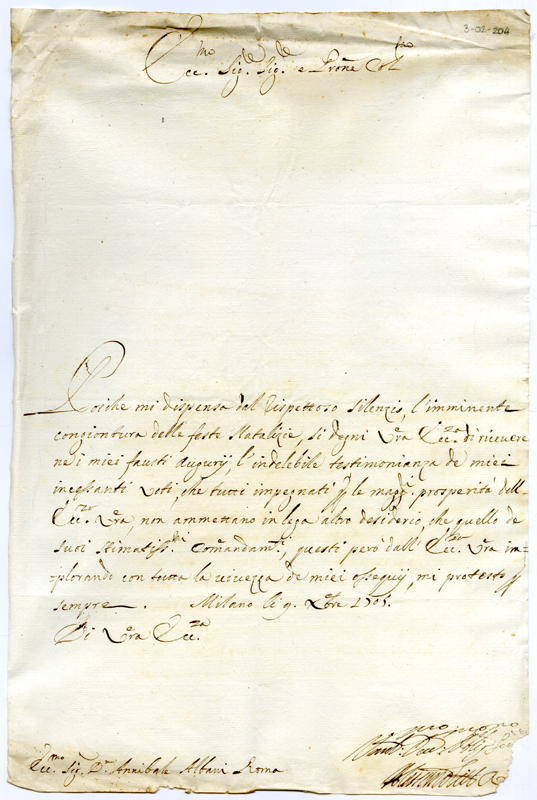 3-02-204
Ecc.mo Sig.re Sig.re e Prone Col.mo
Poiche mi dispensa dal rispettoso silenzio, l'imminente
congiontura delle feste Natalizie, si degni Vra Ecc.za di riceuere
ne i miei fausti augurÿ, l'indelebile testimonianza de miei
incessanti Voti, che tutti impegnati p le magg.i prosperità dell
Ecc.za Vra, non ammettano in lega altro desiderio, che quello de
suoi stimatiss.mi Comandam.ti, questi però dall' Ecc.za Vra im=
=plorando con tutta la uiuezza de miei ossequÿ, mi protesto p
sempre. Milano li 9. Xbre 1705.
Di Vra Ecc.za
Ecc.mo Sig. D. Annibale Albani Roma